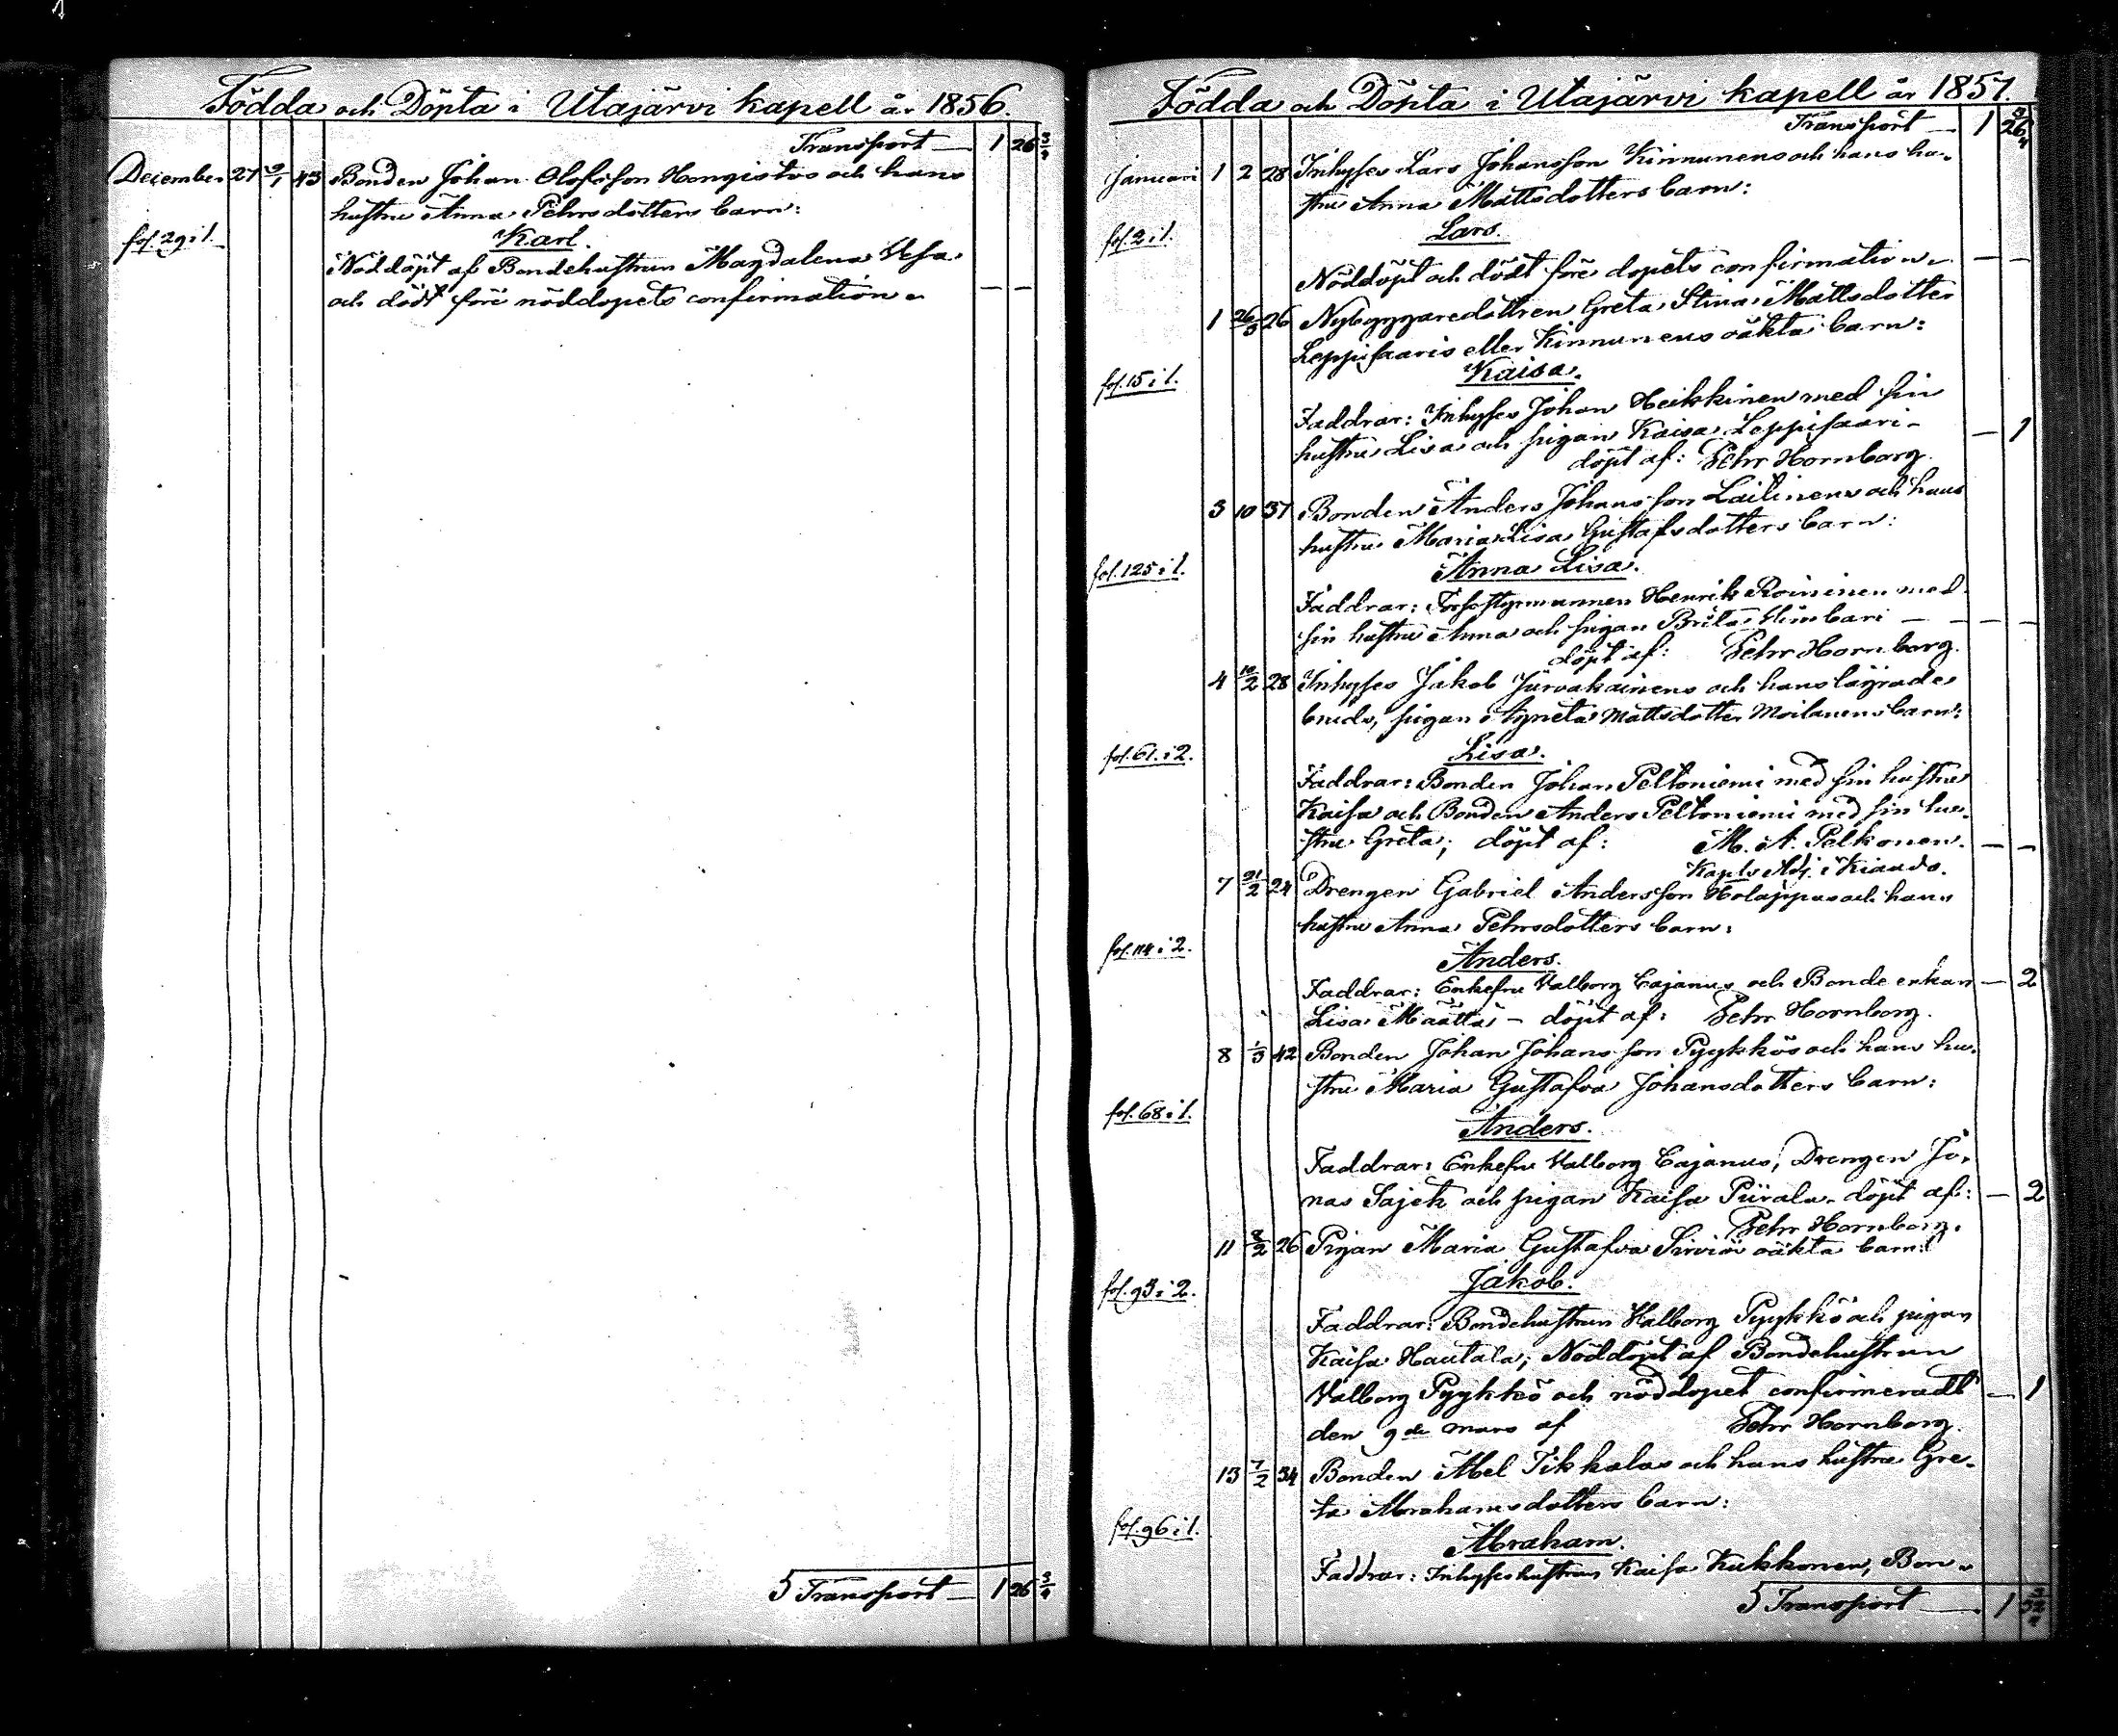 Födda och Döpta i Utajärvi kapell år 1856.
Transport — 1 26 3/4
December 27 43 Bonden Johan Olofsson Hongistos och hans
hustru Anna Pehrsdotters barn:
fol. 29 i 1. Karl.
Nöddöpt af Bondehustrun Magdalena Vesa
och dödt före nöddopets confirmation — —
5 Transport — 1 26 3/4
Födda och Döpta i Utajärvi kapell år 1857.
Transport — 1 26 3/4
Januari 1 2 28 Inhyses Lars Johansson Kinnunens och hans hu-
stru Anna Mattsdotters barn:
fol. 2 i 1. Lars.
Nöddöpt och dödt före dopets confirmation — —
1 26/3 26 Nybyggaredottren Greta Stina Mattsdotter
Leppisaaris eller Kinnunens oäkta barn:
fol. 15 i 1. Kaisa.
Faddrar: Inhyses Johan Heikkinen med sin
hustru Lisa och pigan Kaisa Leppisaari — — 1
döpt af: Pehr Hornborg.
3 10 37 Bonden Anders Johansson Laitinens och hans
hustru Maria Lisa Gustafsdotters barn:
fol. 125 i 1. Anna Lisa.
Faddrar: Forsstyrmannen Henrik Roininen med
sin hustru Anna och pigan Brita — — —
döpt af: Pehr Hornborg.
4 10/2 28 Inhyses Jakob Jurvakainens och hans lägrade
bruds, pigan Agneta Mattsdotter Moilanens barn:
fol. 61. i 2. Lisa.
Faddrar: Bonden Johan Peltoniemi med sin hustru
Kaisa och Bonden Anders Peltoniemi med sin hu-
stru Greta; döpt af: M. A. Pelkonen. — —
Kapls Adj. i Kiando.
7 21/2 24 Drengen Gabriel Andersson Holappas och hans
hustru Anna Pehrsdotters barn:
fol. 114 i 2. Anders.
Faddrar: Enkefru Valborg Cajanus och Bonde enkan — 2
Lisa Määttä — döpt af: Pehr Hornborg.
8 1/3 42 Bonden Johan Johansson Pyykkös och hans hu-
stru Maria Gustafva Johansdotters barn:
fol. 68 i 1. Anders.
Faddrar: Enkefru Valborg Cajanus, Drengen Jo-
nas Sajek och pigan Kaisa Piirala. döpt af: — 2
Pehr Hornborg.
11 8/2 26 Pigan Maria Gustafva Sirviös oäkta barn:
fol. 93 i 2. Jakob.
Faddrar: Bondehustrun Valborg Pyykkö och pigan
Kaisa Hautala; Nöddöpt af Bondehustrun
Valborg Pyykkö och nöddopet confirmeradt — 1
den 9de mars af Pehr Hornborg.
13 7/2 34 Bonden Abel Tikkalas och hans hustru Gre-
ta Abrahamsdotters barn:
fol. 96 i 1. Abraham.
Faddrar: Inhyseshustrun Kaisa Kukkonen, Bon-
5 Transport — 1 32 3/4